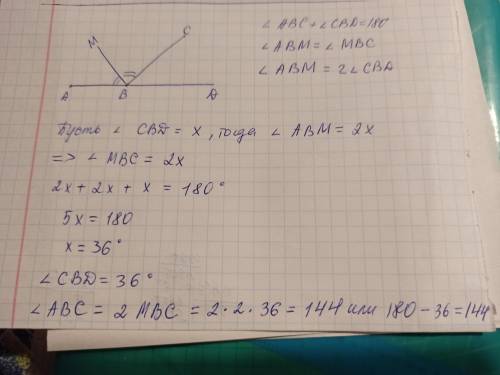 M
C
A
B
D
∠ ABC + ∠ CBD = 180°
∠ ABM = ∠ MBC
∠ ABM = 2∠ CBD
Пусть ∠ CBD = x, тогда ∠ ABM = 2x
=> ∠ MBC = 2x
2x + 2x + x = 180°
5x = 180
x = 36°
∠ CBD = 36°
∠ ABC = 2 MBC = 2·2·36 = 144 или 180 - 36 = 144